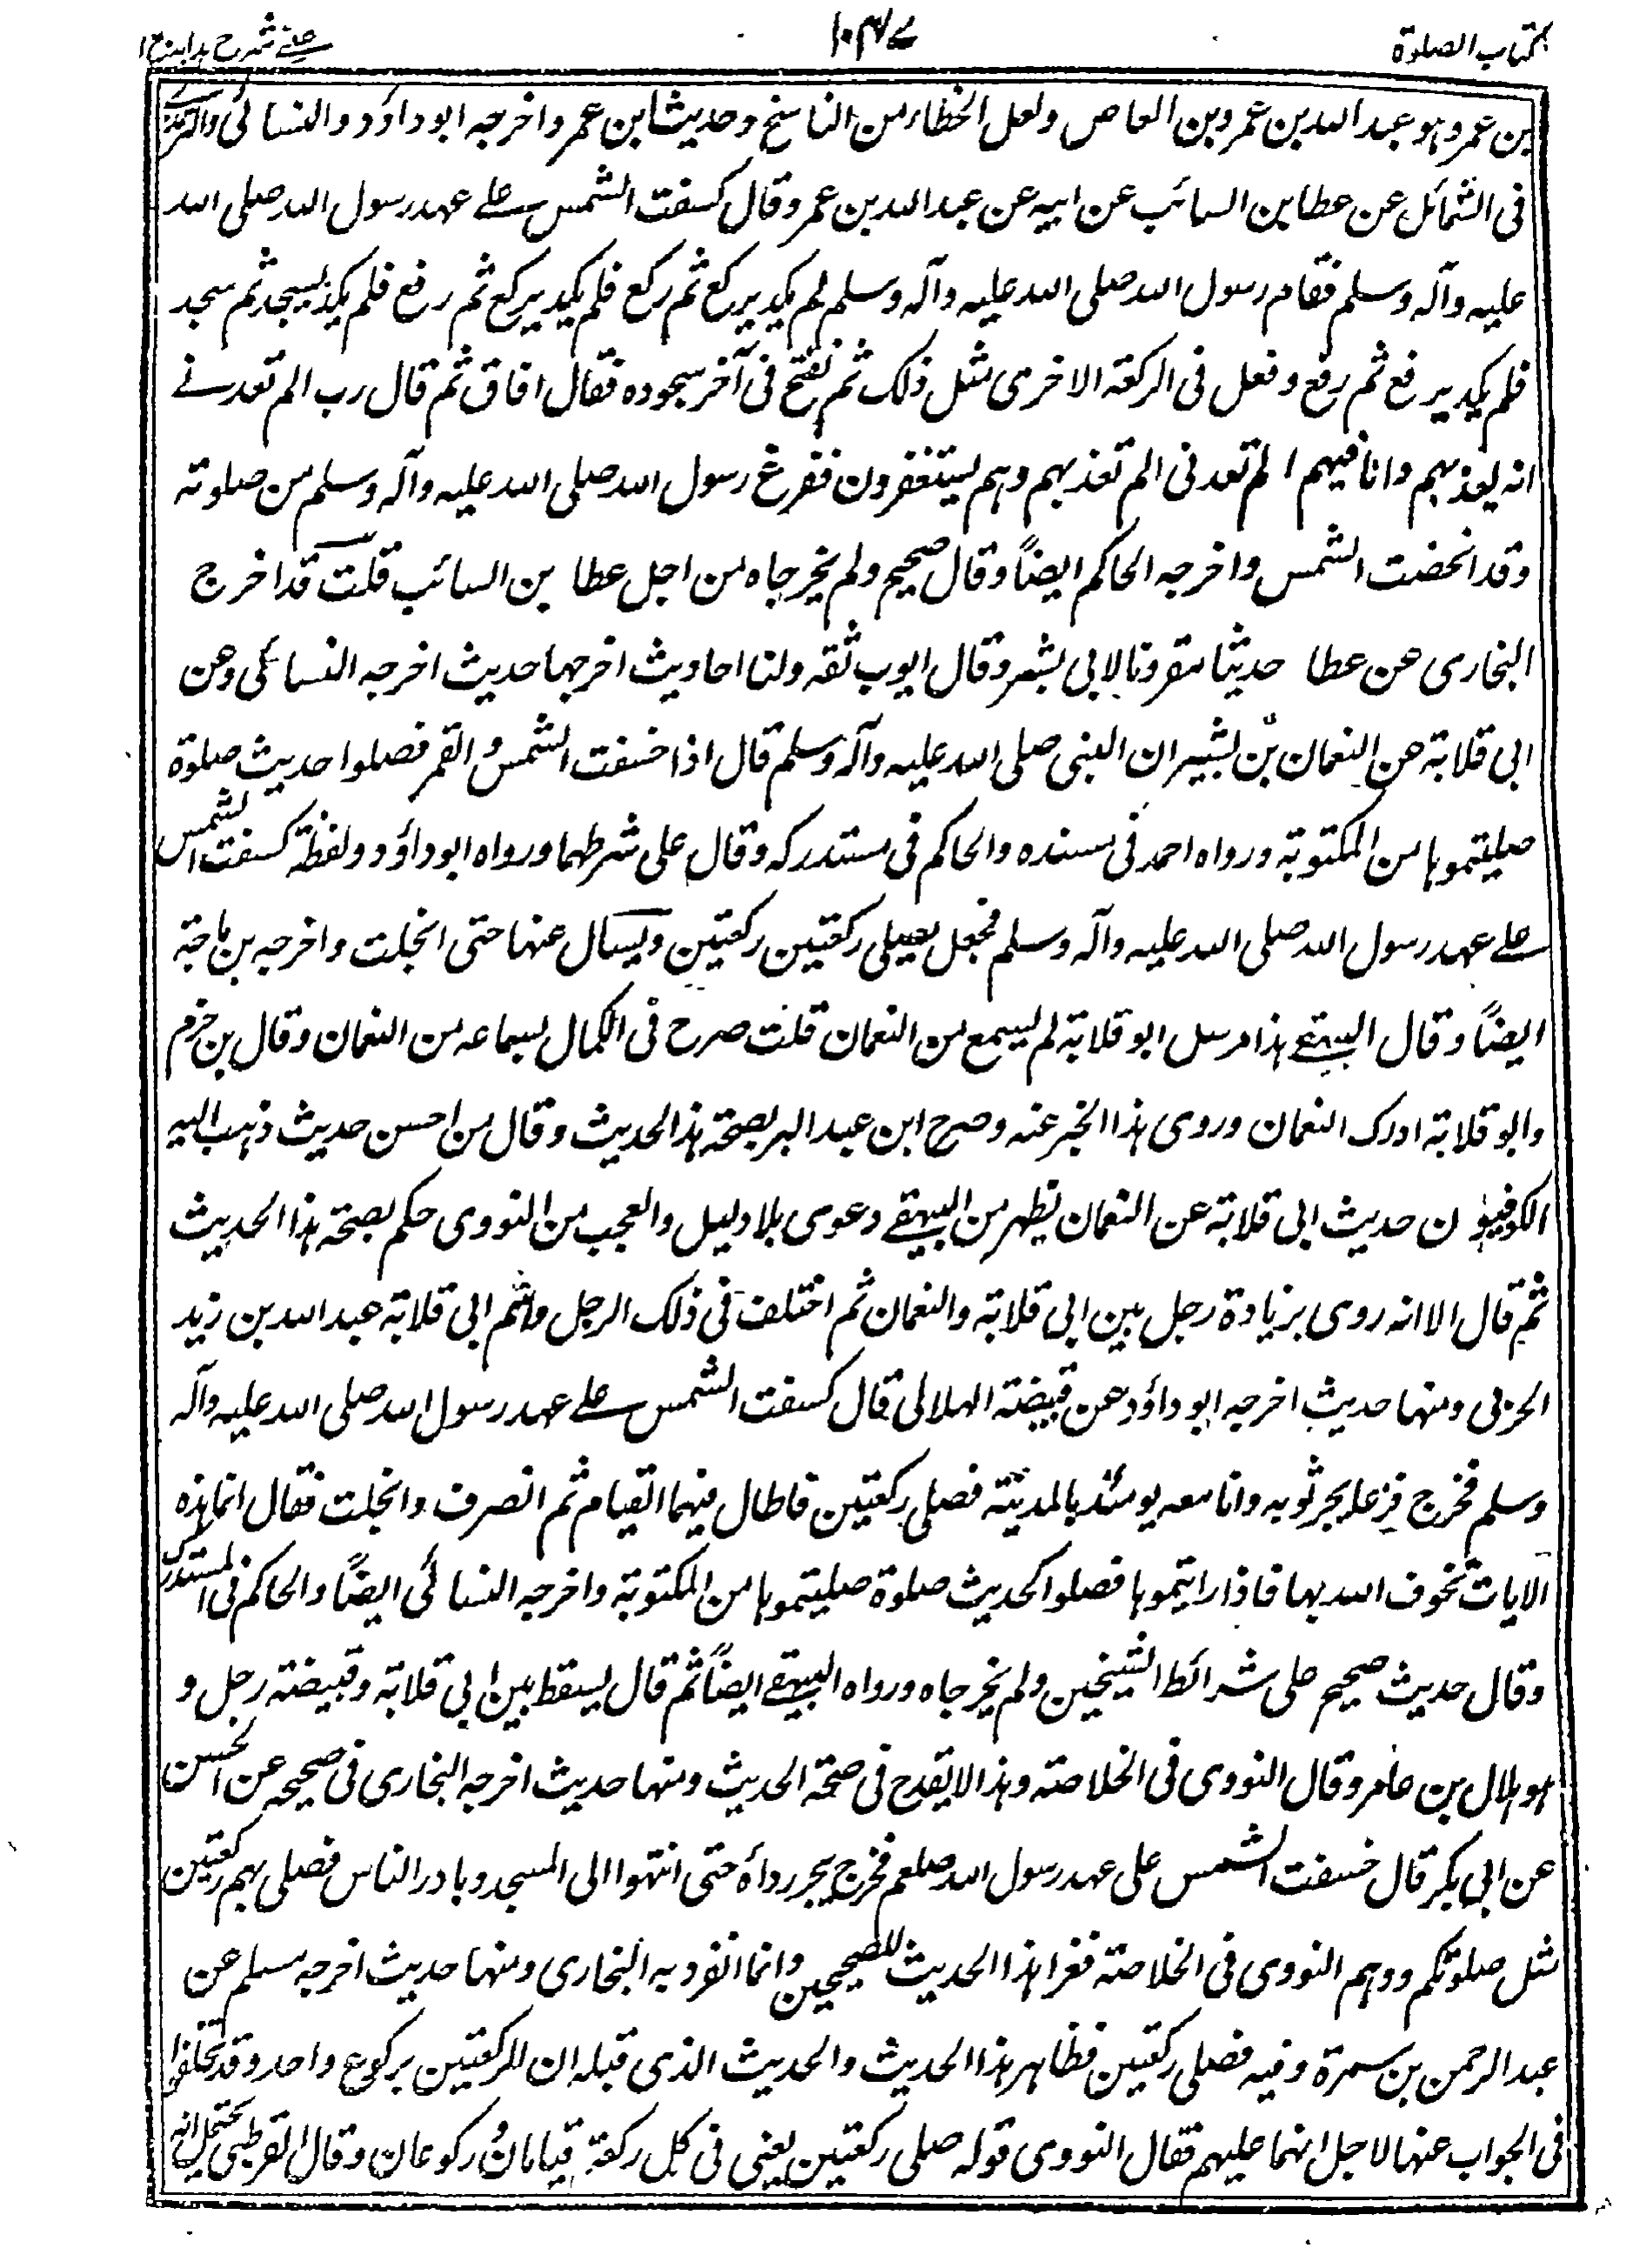 كتاب الصلوة
١٠٣٧
عيني شرح هداية ج ١
بن عمرو هو عبد الله بن عمرو بن العاص ولعل الخطاء من الناسخ وحديث ابن عمر واخرجه ابو داؤد والنسائى والترمذي
فى الشمائل عن عطا بن السائب عن ابيه عن عبد الله بن عمر وقال كسفت الشمس على عهد رسول الله صلى الله
عليه وآله وسلم فقام رسول الله صلى الله عليه وآله وسلم لم يكد يركع ثم ركع فلم يكد يركع ثم رفع فلم يكد يسجد ثم سجد
فلم يكد يرفع ثم رفع وفعل فى الركعة الاخرى مثل ذلك ثم نفخ فى آخر سجوده فقال افاق ثم قال رب الم تعدنى
انه يعذبهم وانا فيهم الم تعدنى الم تعذبهم وهم يستغفرون ففرغ رسول الله صلى الله عليه وآله وسلم من صلوته
وقد انحضت الشمس واخرجه الحاكم ايضاً وقال صحيح ولم يخرجاه من اجل عطا بن السائب قلت قد اخرج
البخارى عن عطا حديثا مقرونا لابى بشر وقال ايوب ثقه ولنا احاديث اخرجها حديث اخرجه النسائى وعن
ابى قلابة عن النعمان بن بشير ان النبى صلى الله عليه وآله وسلم قال اذا خسفت الشمس والقمر فصلوا حديث صلوة
صليتموها من المكتوبة ورواه احمد فى مسنده والحاكم فى مستدركه وقال على شرطهما ورواه ابو داؤد ولفظه كسفت الشمس
على عهد رسول الله صلى الله عليه وآله وسلم فجعل يصلى ركعتين ركعتين ويسال عنها حتى انجلت واخرجه بن ماجة
ايضاً وقال البيهقى هذا مرسل ابو قلابة لم يسمع من النعمان قلت صرح فى الكمال بسماعه من النعمان وقال بن حزم
وابو قلابة ادرك النعمان وروى هذا الخبر عنه وصرح ابن عبد البر بصحة هذا الحديث وقال من احسن حديث ذهب اليه
الكوفيون حديث ابى قلابة عن النعمان يظهر من البيهقى دعوى بلا دليل والعجب من النووى حكم بصحة هذا الحديث
ثم قال الا انه روى بزيادة رجل بين ابى قلابة والنعمان ثم اختلف فى ذلك الرجل واسم ابى قلابة عبد الله بن زيد
الحربى ومنها حديث اخرجه ابو داؤد عن قبيضة الهلالى قال كسفت الشمس على عهد رسول الله صلى الله عليه وآله
وسلم فخرج فزعا يجر ثوبه وانا معه يومئذ بالمدينة فصلى ركعتين فاطال فيهما القيام ثم انصرف وانجلت فقال انما هذه
الايات تخوف الله بها فاذا رايتموها فصلوا كحديث صلوة صليتموها من المكتوبة واخرجه النسائى ايضاً والحاكم فى المستدرك
وقال حديث صحيح على شرائط الشيخين ولم يخرجاه ورواه البيهقى ايضاً ثم قال يسقط بين ابى قلابة وقبيضة رجل و
هو هلال بن عامر وقال النووى فى الخلاصة وهذا لا يقدح فى صحة الحديث ومنها حديث اخرجه البخارى فى صحيحه عن الحسن
عن ابى بكر قال خسفت الشمس على عهد رسول الله صلعم فخرج يجر رداه حتى انتهوا الى المسجد وبادر الناس فصلى بهم ركعتين
مثل صلوتكم ووهم النووى فى الخلاصة فغزا هذا الحديث للصحيحين وانما انفرد به البخارى ومنها حديث اخرجه مسلم عن
عبد الرحمن بن سمرة وفيه فصلى ركعتين فظاهر هذا الحديث والحديث الذى قبله ان الركعتين بركوع واحد وقد تكلفوا
فى الجواب عنها لاجل انهما عليهم فقال النووى قوله صلى ركعتين يعنى فى كل ركعة قيامان وركوعان وقال القرطبى يحتمل انه